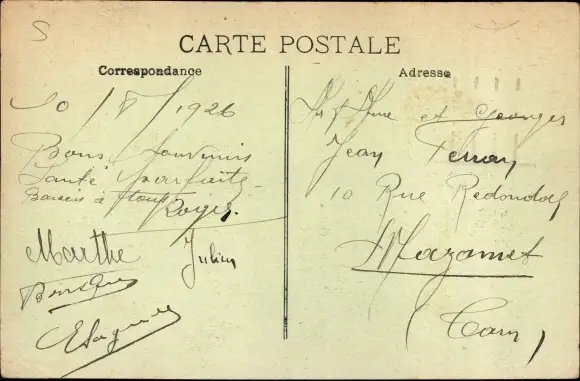 S
CARTE POSTALE
Correspondance
10/8/1926
Bons Souvenirs
Santé parfaite
Baisers à tous
Roger
Marthe
Julien
Adresse
et Georges
Jean
10 Rue Redondof
Mazamet
(Tarn)